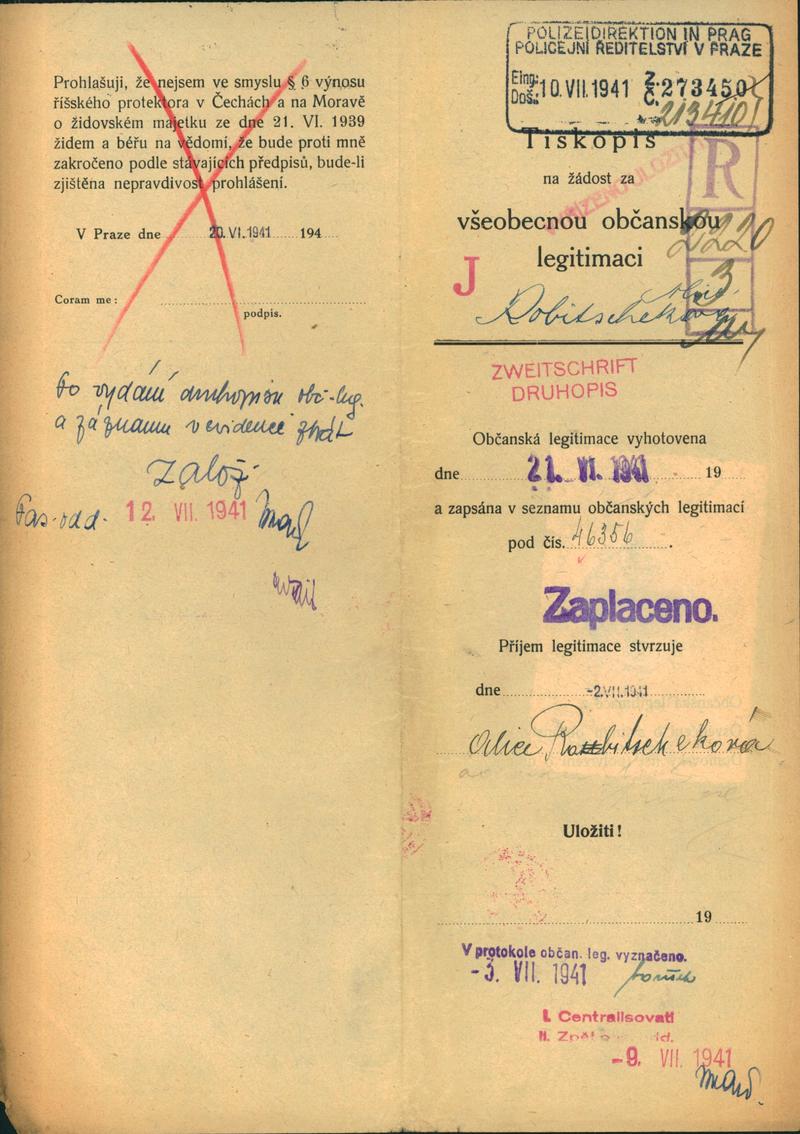 Prohlašuji, že nejsem ve smyslu § 6 výnosu
říšského protektora v Čechách a na Moravě
o židovském majetku ze dne 21. VI. 1939
židem a béřu na vědomí, že bude proti mně
zakročeno podle stávajících předpisů, bude-li
zjištěna nepravdivost prohlášení.
V Praze dne 20. VI. 1941 194
Coram me:
podpis.
Po vydání druhopisu obč. leg.
a záznamu v evidenci zpět
Založ
Pas. odd. 12. VII. 1941
POLIZEIDIREKTION IN PRAG
POLICEJNÍ ŘEDITELSTVÍ V PRAZE
Eing.: Došl.: 10. VII. 1941 Z. Č. 273450
213410
Tiskopis
R
na žádost za
všeobecnou občanskou
2220
legitimaci
3
J
Robitscheková
ZWEITSCHRIFT
DRUHOPIS
Občanská legitimace vyhotovena
dne 21. VI. 1941 19
a zapsána v seznamu občanských legitimací
pod čís. 46356 .
Zaplaceno.
Příjem legitimace stvrzuje
dne -2. VII. 1941
Alice Robitscheková
Uložiti!
19
V protokole občan. leg. vyznačeno.
-3. VII. 1941
I. Centralisovati
II.
-9. VII. 1941